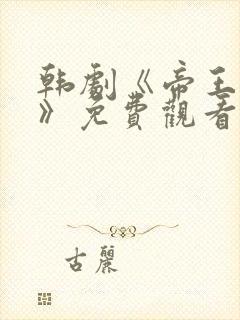 韩劇《帝王
》免費觀看
古麗